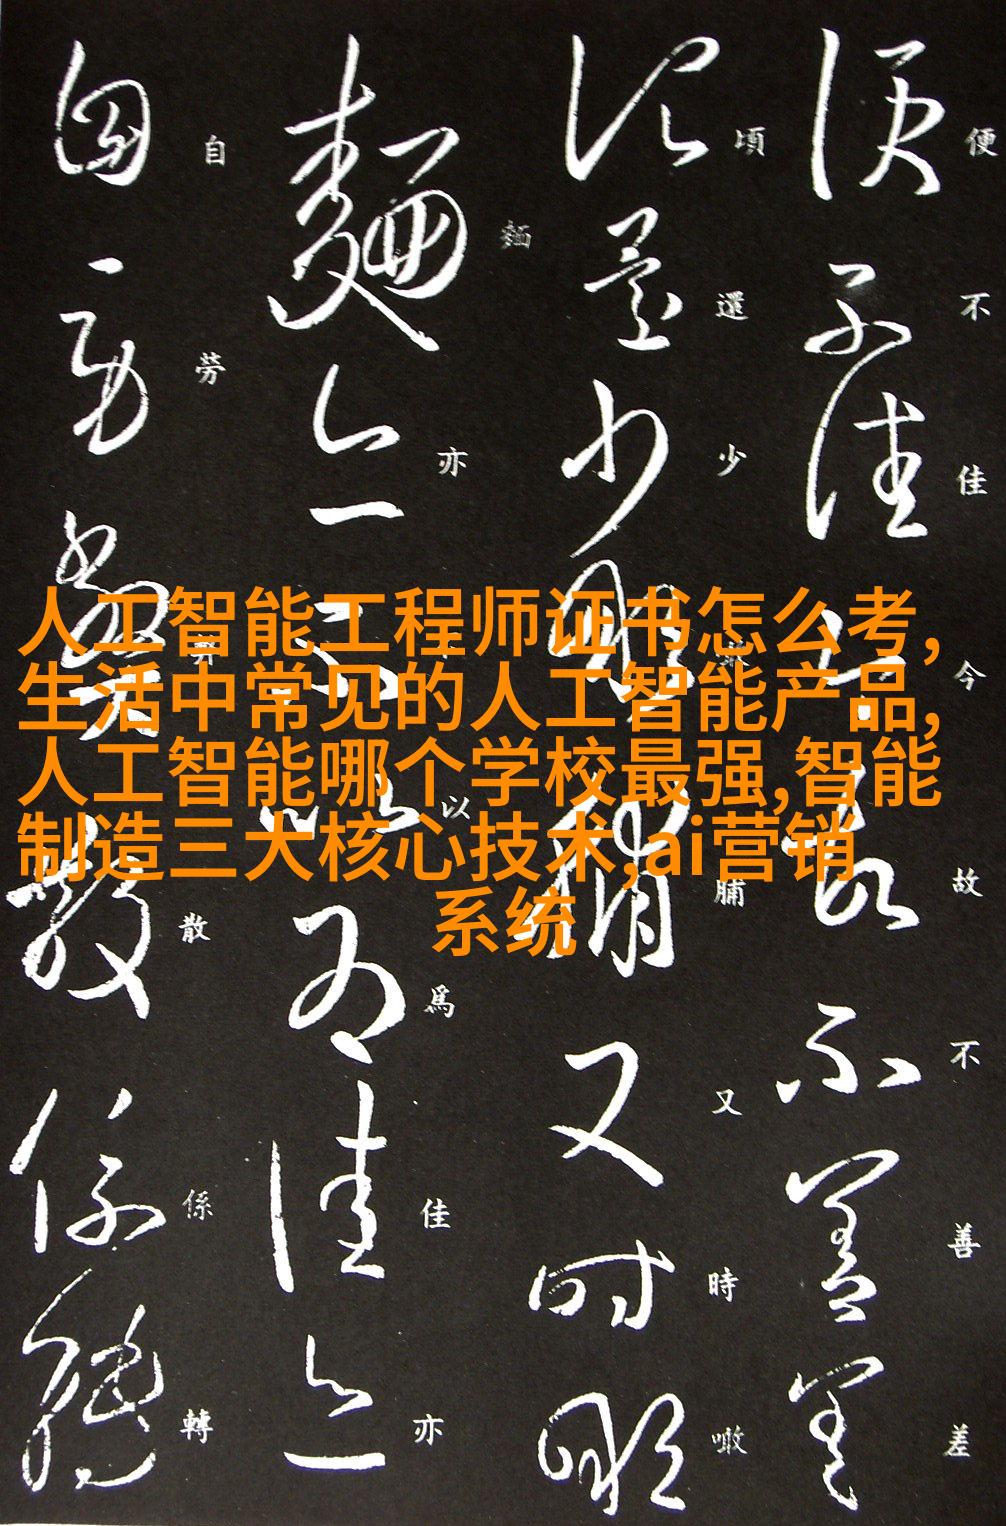 便不佳今故不善差
頃還少噉脯又時噉
麵亦不以為佳亦
自勞散係轉
人工智能工程师证书怎么考,
生活中常见的人工智能产品,
人工智能哪个学校最强,智能
制造三大核心技术,ai营销
系统